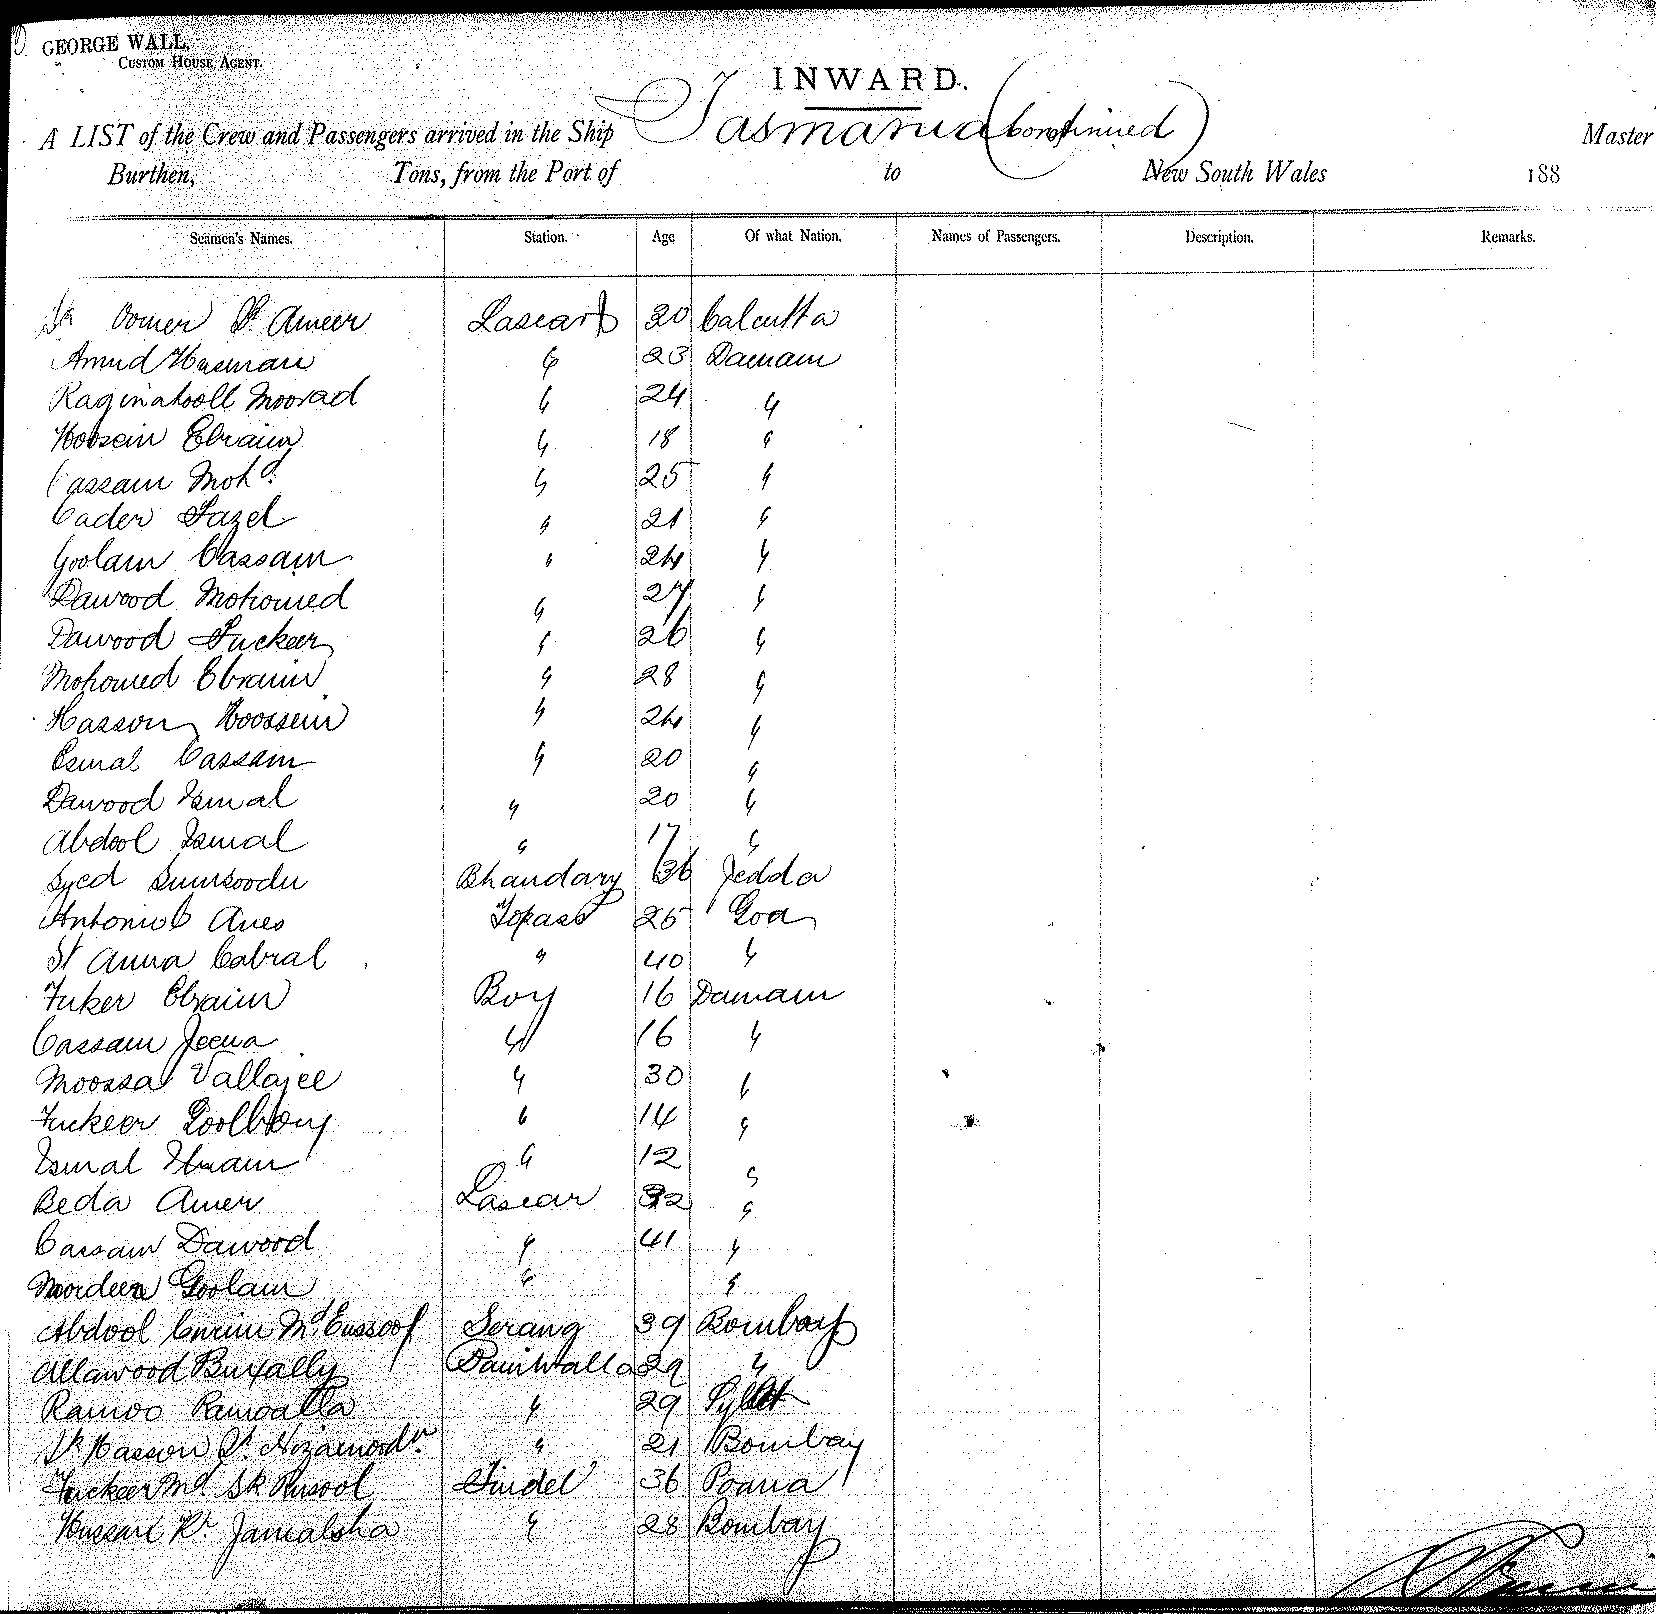 GEORGE WALL,
CUSTOM HOUSE AGENT.
INWARD.
A LIST of the Crew and Passengers arrived in the Ship Tasmania (Continued) Master
Burthen, Tons, from the Port of to New South Wales 188
Seamen's Names. Station. Age Of what Nation. Names of Passengers. Description. Remarks.
Sk Oomer Sk Ameer Lascar 20 Calcutta
Amud Husman " 23 Damam
Moorad " 24 "
Hoosein Ebraim " 18 "
Cassam Mohd. " 25 "
Cader Fazel " 21 "
Goolam Cassam " 24 "
Dawood Mohomed " 27 "
Dawood Fuckeer " 26 "
Mohomed Ebraim " 28 "
Hasson Hoossein " 24 "
Esmal Cassam " 20 "
Dawood Ismal " 20 "
Abdool Ismal " 17 "
Syed Sumsoodn Bhandary 36 Jedda
Antonio Aves Topass 25 Goa
St Anna Cabral " 40 "
Fuker Ebraim Boy 16 Damam
Cassam Jeena " 16 "
Moossa Vallajee " 30 "
Fuckeer " 14 "
Ismal " 12 "
Beda Amer Lascar 32 "
Cassam Dawood " 41 "
Noordeen Goolam " "
Abdool Curim Md. Eussoof Serang 39 Bombay
Allawood Buxally Paniwalla 29 "
Ramoo Ramoalla " 29 Syllet
Sk Hasson Sk. Nozamoodn. " 21 Bombay
Fuckeer Md Sk Rusool Tindel 36 Poona
Jamalsha " 28 Bombay